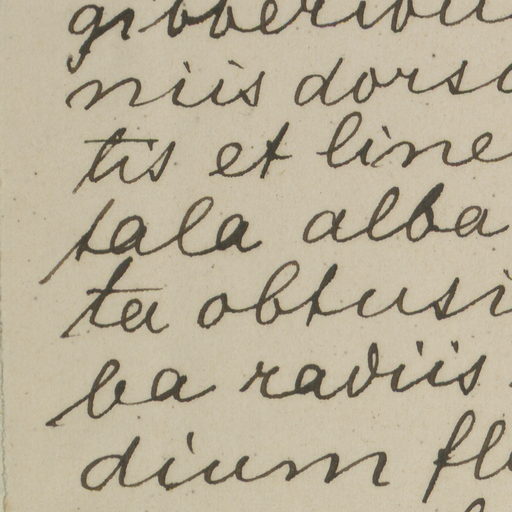 gibberibu
niis dorso
tis et line
tala alba
ta obtusi
ba radiis
dium fl